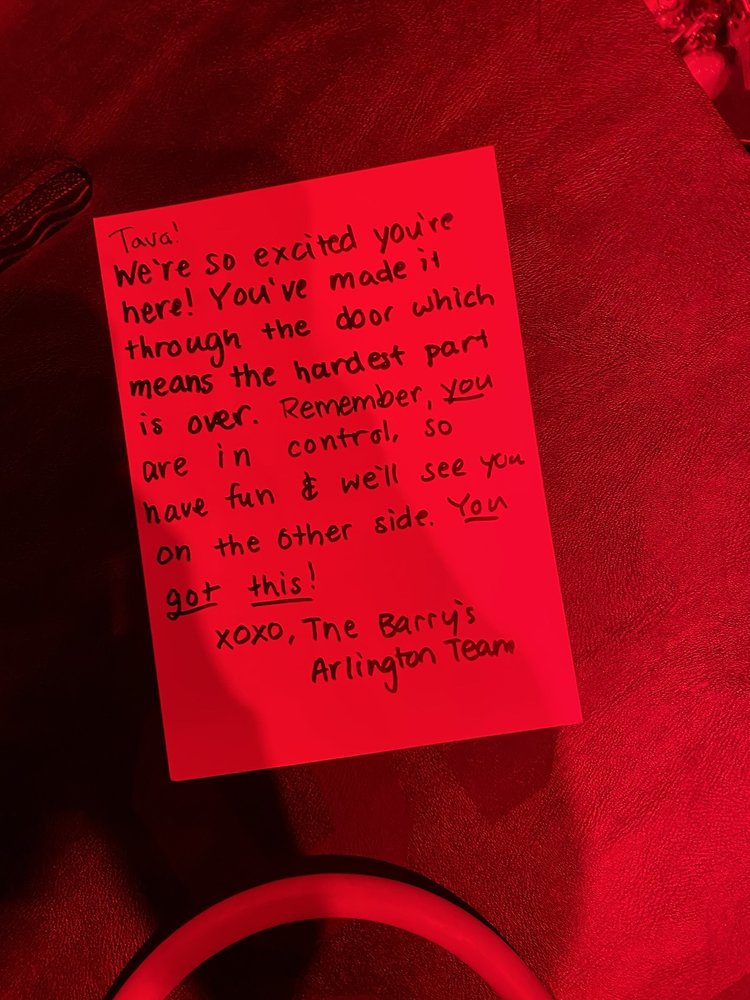 Tava!
We're so excited you're
here! You've made it
through the door which
means the hardest part
is over. Remember, you
are in control, so
have fun & we'll see you
on the other side. You
got this!
xoxo, The Barry's
Arlington Team